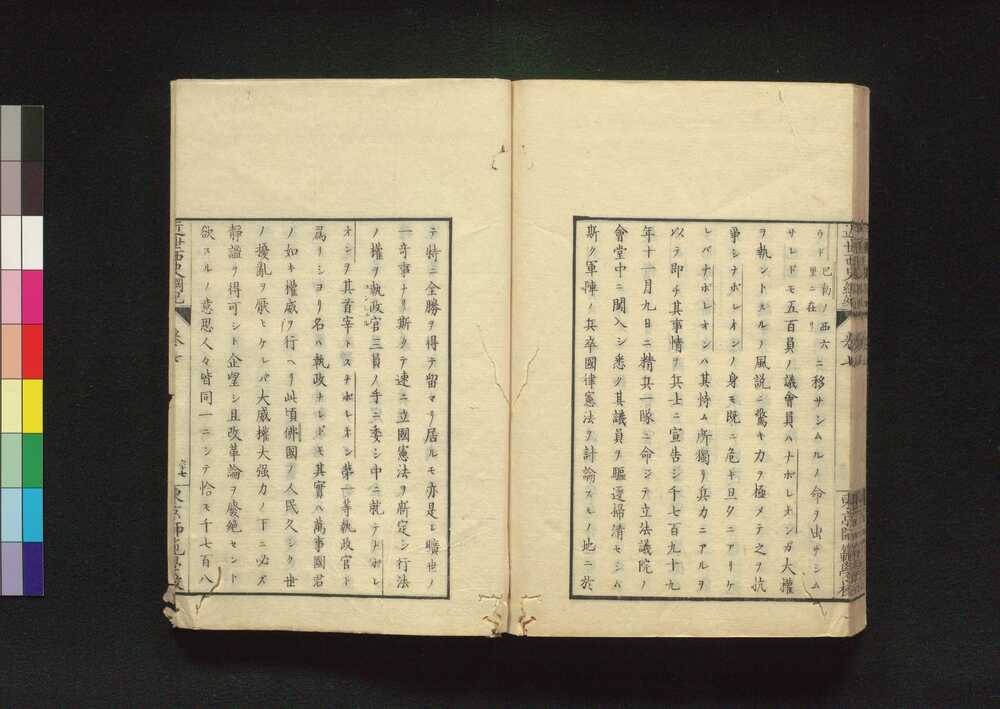 ウド 巴勒ノ西六里ニ在リ ニ移サシムルノ命ヲ出サシム
サレドモ五百員ノ議會員ハナポレオンガ大權
ヲ執ントスルノ風説ニ驚キ力ヲ極メテ之ヲ抗
爭シナポレオンノ身モ既ニ危キ旦夕ニアリケ
レバナポレオンハ其恃ム所獨リ兵力ニアルヲ
以テ即チ其事情ヲ兵士ニ宣告シ千七百九十九
年十一月九日ニ精兵一隊ニ命ジテ立法議院ノ
會堂中ニ闖入シ悉ク其議員ヲ驅逐掃淸セシム
斯ク軍陣ノ兵卒國律憲法ヲ討論スルノ地ニ於
テ特ニ全勝ヲ得テ留マリ居ルモ亦是レ曠世ノ
一奇事ナリ斯クテ速ニ立國憲法ヲ新定シ行法
ノ權ヲ執政官三員ノ手ニ委シ中ニ就テナポレ
オンヲ其首宰トスナポレオン第一等執政官ト
爲リシヨリ名ハ執政ナレドモ其實ハ萬事國君
ノ如キ權威ヲ行ヘリ此頃佛國ノ人民久シク世
ノ擾亂ヲ厭ヒケレバ大威權大强力ノ下ニ必ズ
靜謐ヲ得可シト企望シ且改革論ヲ廢絶セント
欲スルノ意思人々皆同一ニシテ恰モ千七百八
近世西史綱紀
卷七
東京師範學校